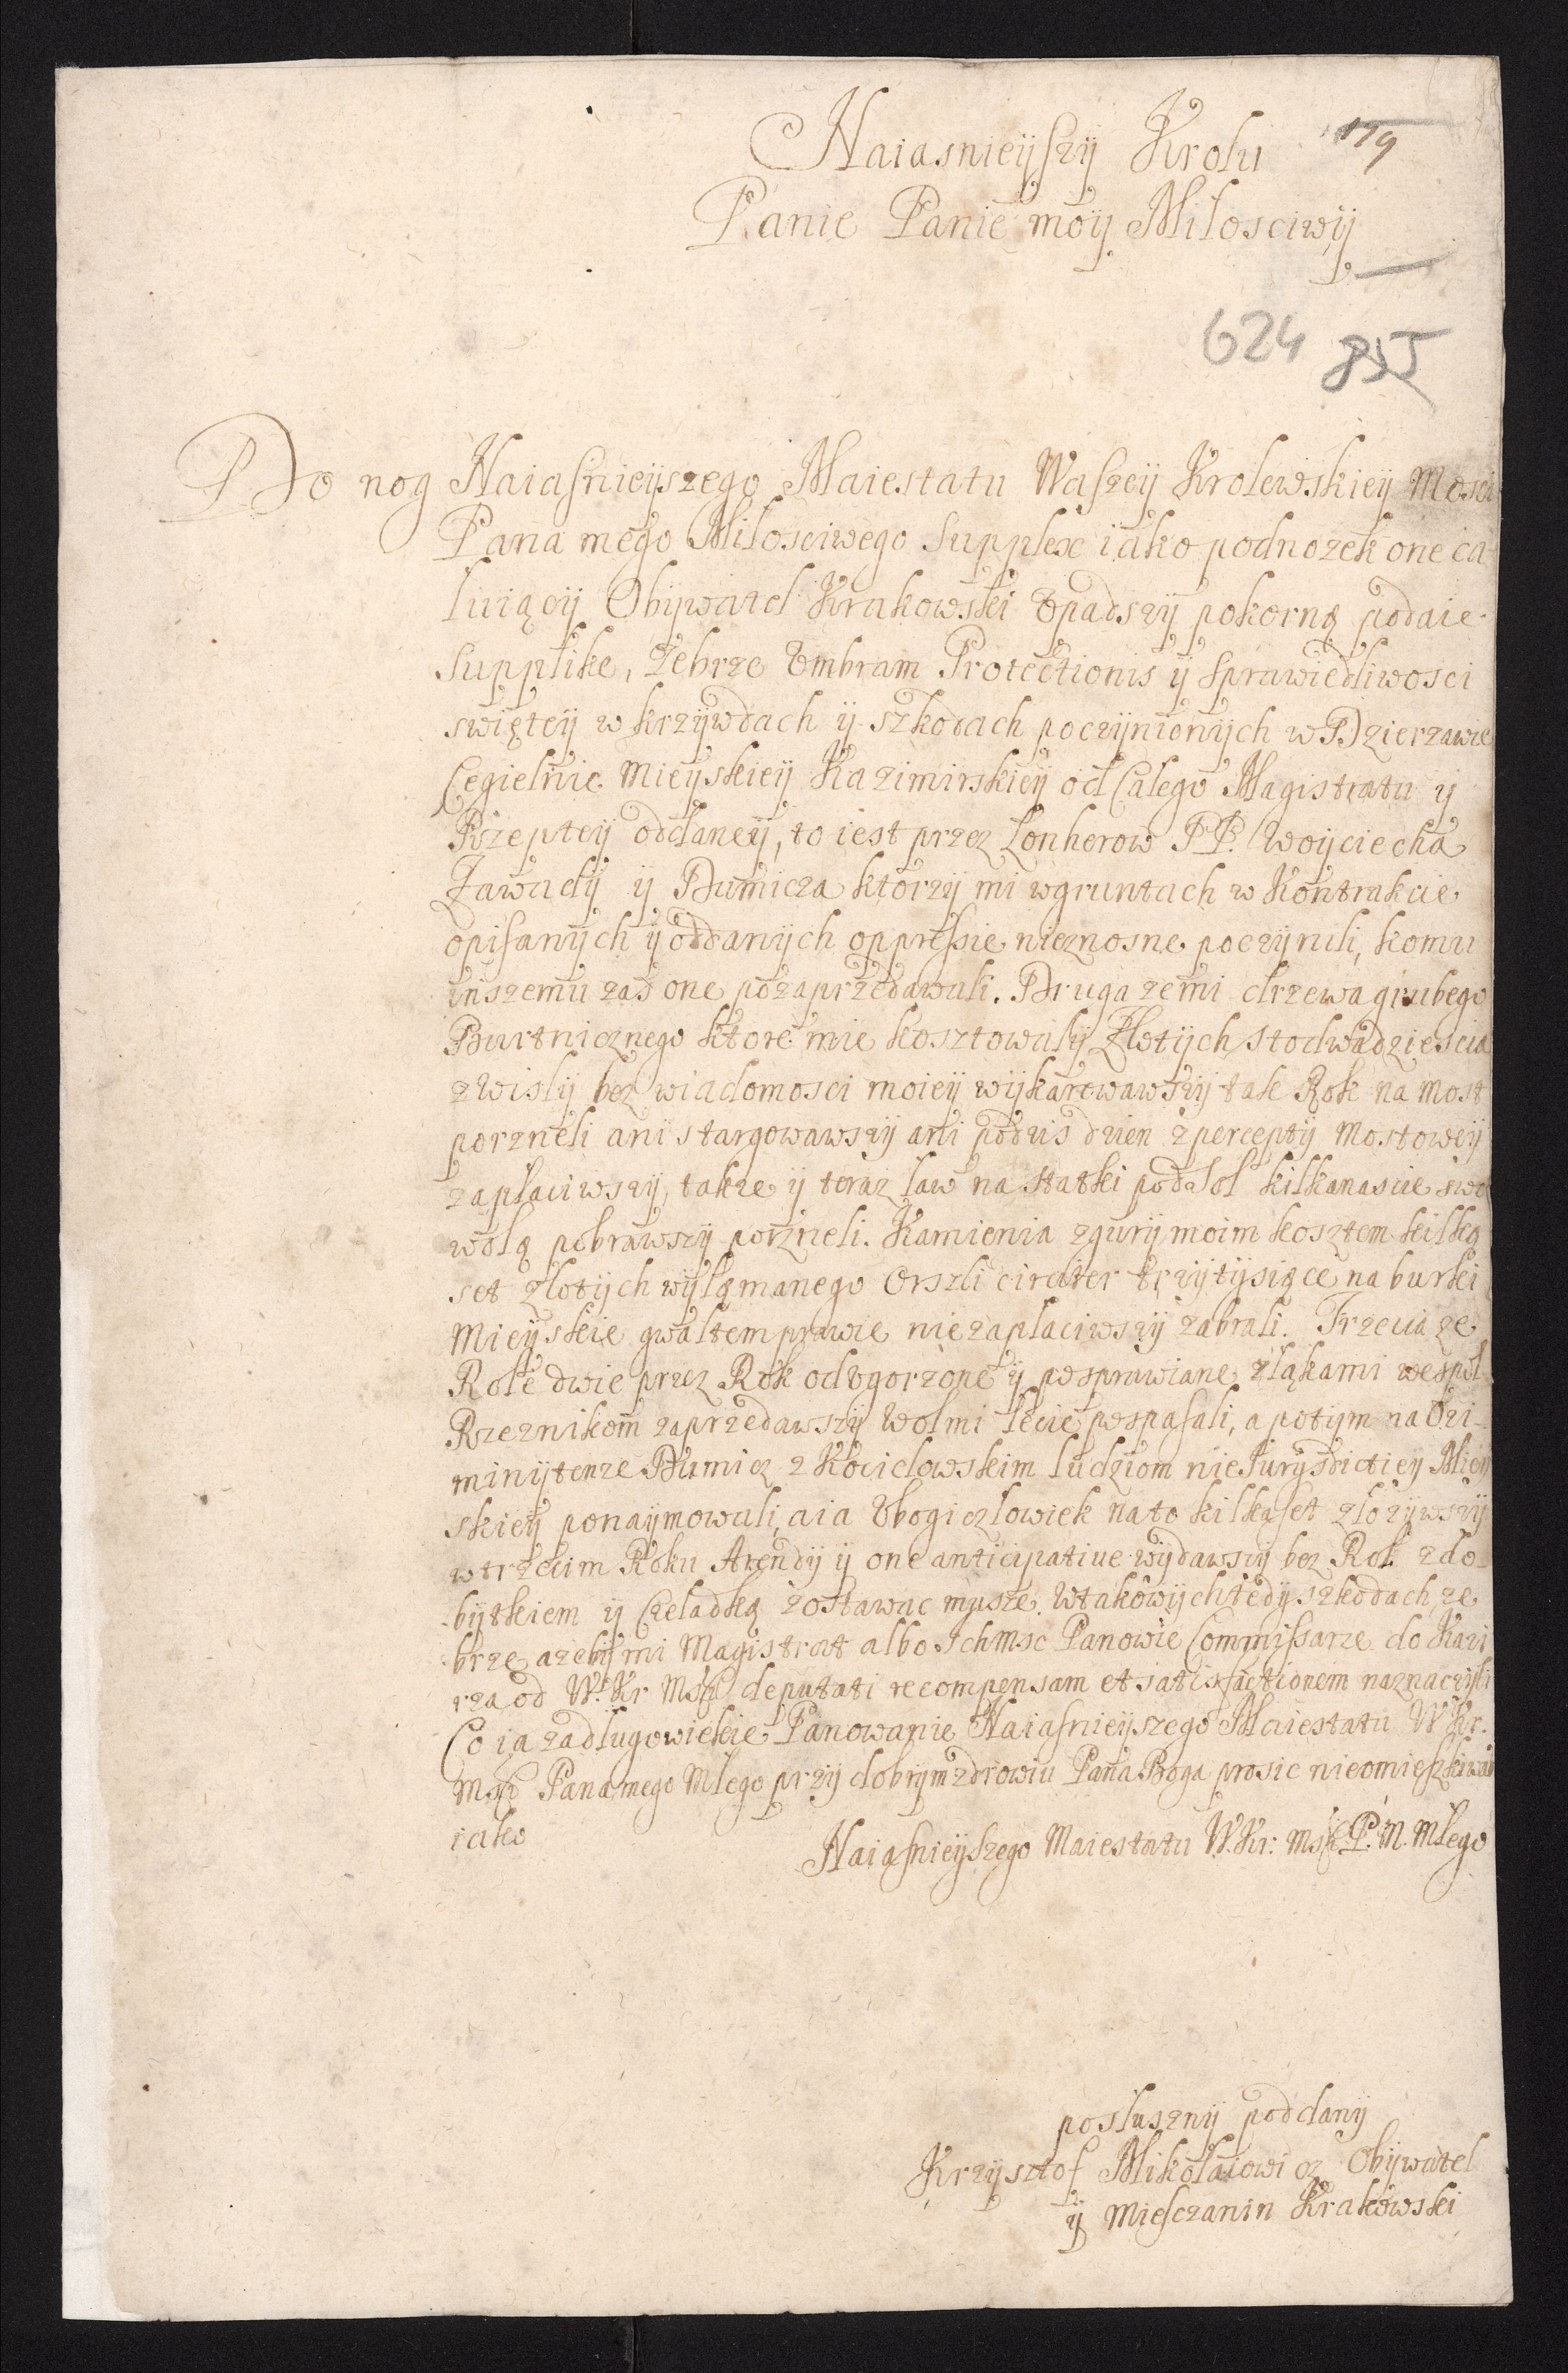 Naiasnieyszy Krolu 179
Panie Panie moy Miłosciwy
624 855
Do nog Naiasnieyszego Maiestatu Waszey Krolewskiey Mosci
Pana mego Miłosciwego Supplex iako podnozek one ca-
łuiący Obywatel Krakowski Upadszy pokorną podaie
Supplike, Zebrze Umbram Protectionis y Sprawiedliwosci
swiętey w krzywdach y szkodach poczynionych w Dzierzawie
Cegielnie Mieyskiey Kazimirskiey od Całego Magistratu y
Rzeptey oddaney, to iest przez Lonherow PP. Woyciecha
Zawady y Dumicza ktorzy mi w gruntach w Kontrakcie
opisanych y oddanych oppressie nieznosne poczynili, komu
inszemu zas one pozaprzedawali. Druga ze mi drzewa grubego
Burtnicznego ktore mie kosztowały Złotych sto dwadziescia
z Wisły bez wiadomosci moiey wykarowawszy tak Rok na Most
porzneli ani stargowawszy ani podzis dzien z percepty Mostowey
zapłaciwszy, takze y teraz ław na statki pod sol kilkanascie swo
wolą pobrawszy porzneli. Kamienia z gury moim kosztem kilką
set złotych wyłąmanego Orszli circiter trzy tysiące na burki
Mieyskie gwałtem prawie niezapłaciwszy zabrali. Trzecia ze
Role dwie przez Rok odugorzone y posprawiane z łąkami wespoł
Rzeznikom zaprzedawszy wołmi lecie pospasali, a potym na Ozi-
miny tenze Dumicz z Kocielowskim ludziom nie Jurysdictiey Miey
skiey ponaymowali, a ia Ubogi człowiek na to kilkaset złozywszy
w trzecim Roku Arendy y one anticipative wydawszy bez Rol z do-
bytkiem y Czeladką zostawac musze. W takowych tedy szkodach ze
brze azeby mi Magistrat albo Ichmsc Panowie Commissarze do Kazi
rza od W. Kr Msci deputati recompensam et satisfactionem naznaczyli
Co ia za długowiekie Panowanie Naiasnieyszego Maiestatu W Kr.
Msci Pana mego Młego przy dobrym zdrowiu Pana Boga prosic nieomieszkiwam
iako
Naiasnieyszego Maiestatu W. Kr: Msci P. M. Młego
posłuszny poddany
Krzysztof Mikołaiowicz Obywatel
y Miesczanin Krakowski